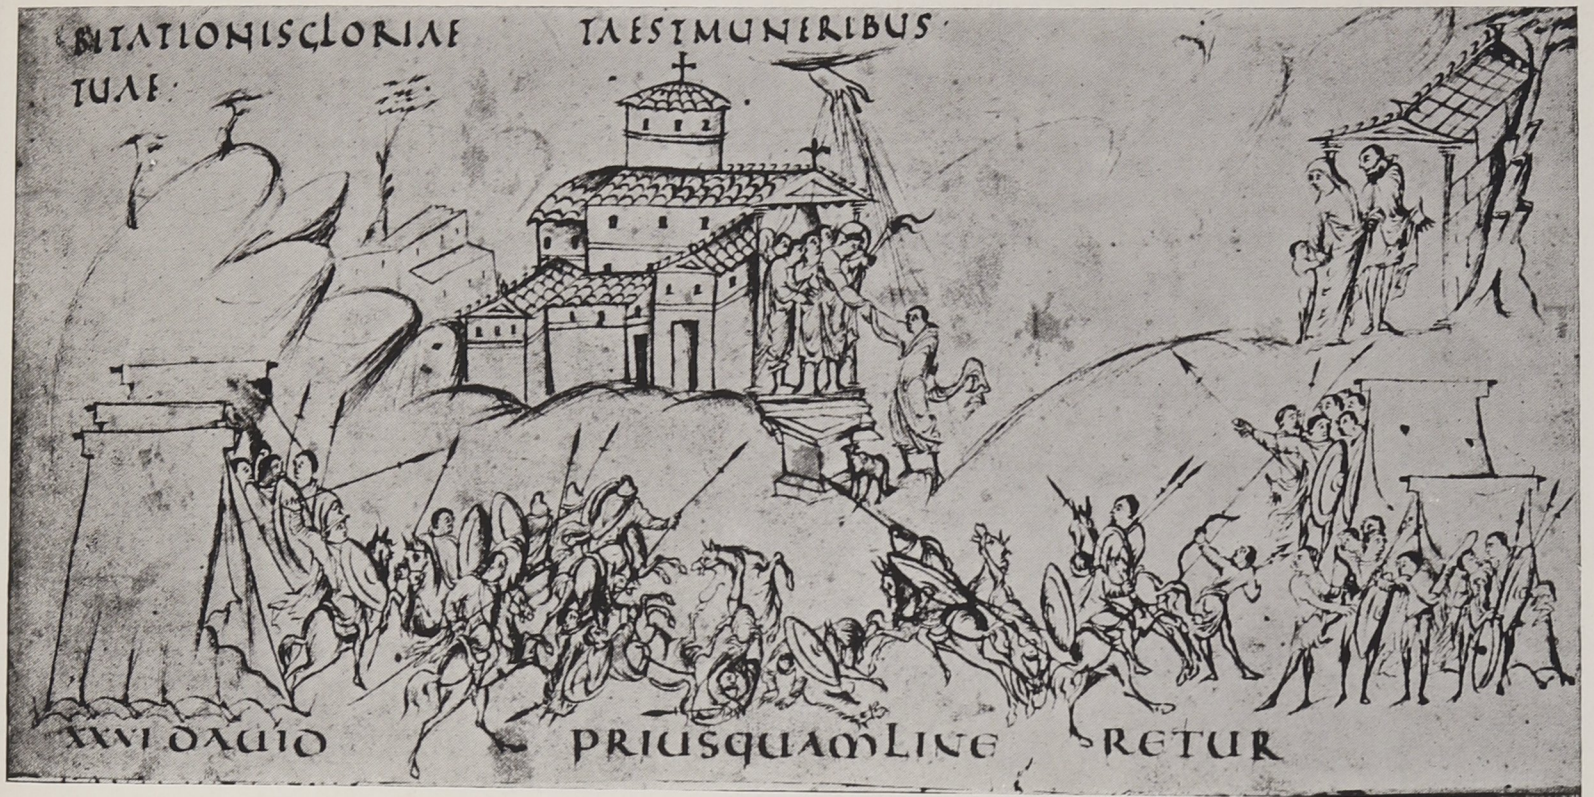 BITATIONISGLORIAE TAESTMUNERIBUS·
TUAE:
XXVI DAUID PRIUSQUAMLINE RETUR